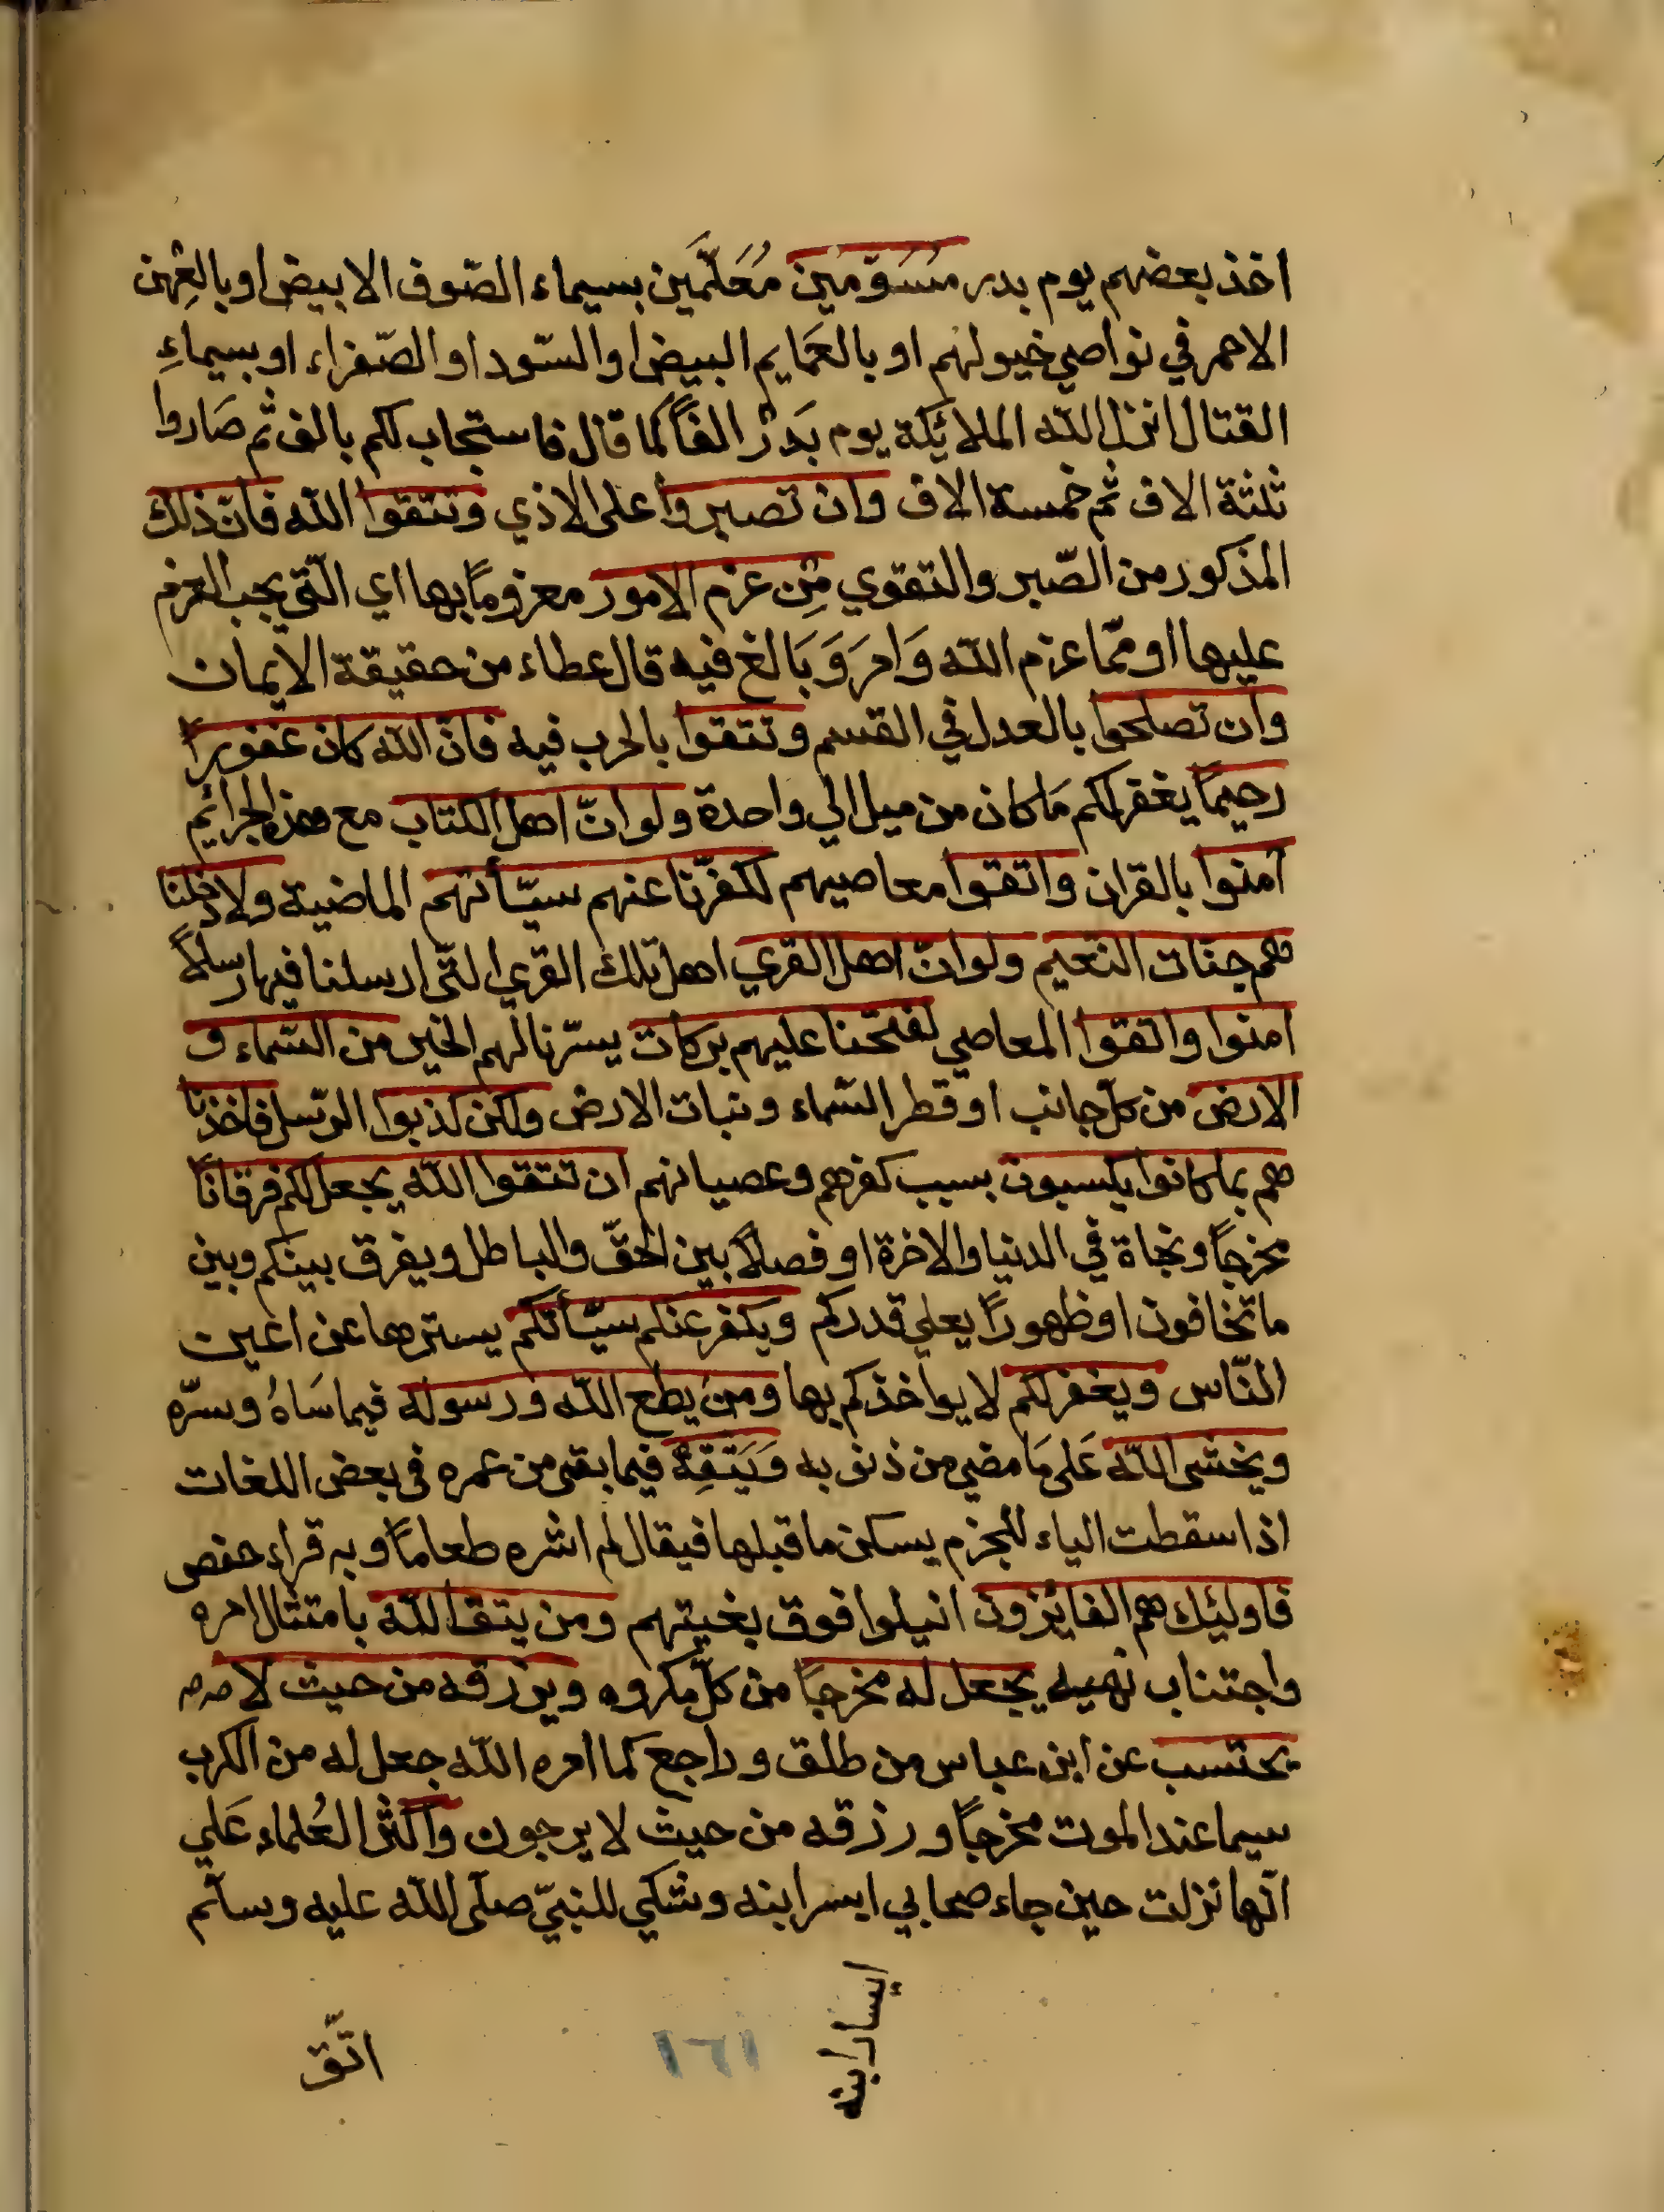 اخذ بعضهم يوم بدر مُسَوّمين مُعَلَّمَين بسيماء الصّوف الابيض او بالعِهن
الاحمر في نواصي خيولهم او بالعَمايم البيض او السّود او الصّفراء او بسيماءِ
القتال انزل الله الملائكة يوم بَدرْ الفاً كما قال فاستجاب لكم بالف ثم صَاروا
ثلثة الاف ثم خمسة الاف وان تصبروا على الاذي وتتقوا الله فانّ ذلك
المذكور من الصّبر والتقوي مِن عزم الامور معزوماً بها اي الّتي يجب العزم
عليها او ممّا عزم الله وَامرَ وَبَالغ فيه قال عطاء من حقيقة الايمان
وان تصلحوا بالعدل في القسم وتتقوا بالحرب فيه فانّ الله كان غفوراً
رحيماً يغفر لكم مَا كان من ميل الي واحدة ولو انّ اهل الكتاب مع هذه الجرائم
آمنوا بالقران واتقوا معاصيهم لكفرّنا عنهم سيّأتهم الماضية ولادخلنا
هم جنات النعيم ولو انّ اهل القري اهل تلك القري الّتي ارسلنا فيها رسلاً
امنوا واتقوا المعاصي لفتحنا عليهم بركات يسّرنا لهم الخير من السّماء و
الارض من كلّ جانب او قطر السّماء ونبات الارض ولكن كذبوا الرّسل فاخذنا
هم بما كانوا يكسبون بسبب كفرهم وعصيانهم ان تتقوا الله يجعل لكم فرقاناً
مخرجاً ونجاة في الدنيا والاخرة او فصلاً بين الحقّ والباطل ويفرق بينكم وبين
ما تخافون او ظهوراً يعلي قدركم ويكفر عنكم سيّأتكم يسترها عن اعين
النّاس ويغفر لكم لا يواخذكم بها ومن يطع الله ورسوله فيما سَاهُ وسرّه
ويخشى الله عَلى مَا مضي من ذنوبه وَيَتقِهْ فيما بقى من عمره في بعض اللغات
اذا سقطت الياء للجزم يسكن ما قبلها فيقال لم اشره طعاماً وبه قراء حفص
فاولئك هم الفائزون انيلوا فوق بغيتهم ومن يتق الله بامتثال امره
واجتناب نهيه يجعل له مخرجاً من كلّ مكروه ويرزقه من حيث لا
يحتسب عن ابن عباس من طلق وراجع كما امره الله جعل له من الكرب
سيما عند الموت مخرجاً ورزقه من حيث لا يرجون واكثر العُلماء عَلي
انّها نزلت حين جاء صحابي ايسر ابنه وشكي للنبيّ صلّى الله عليه وسلّم
ايسار ابنه
١٦١
اتّق